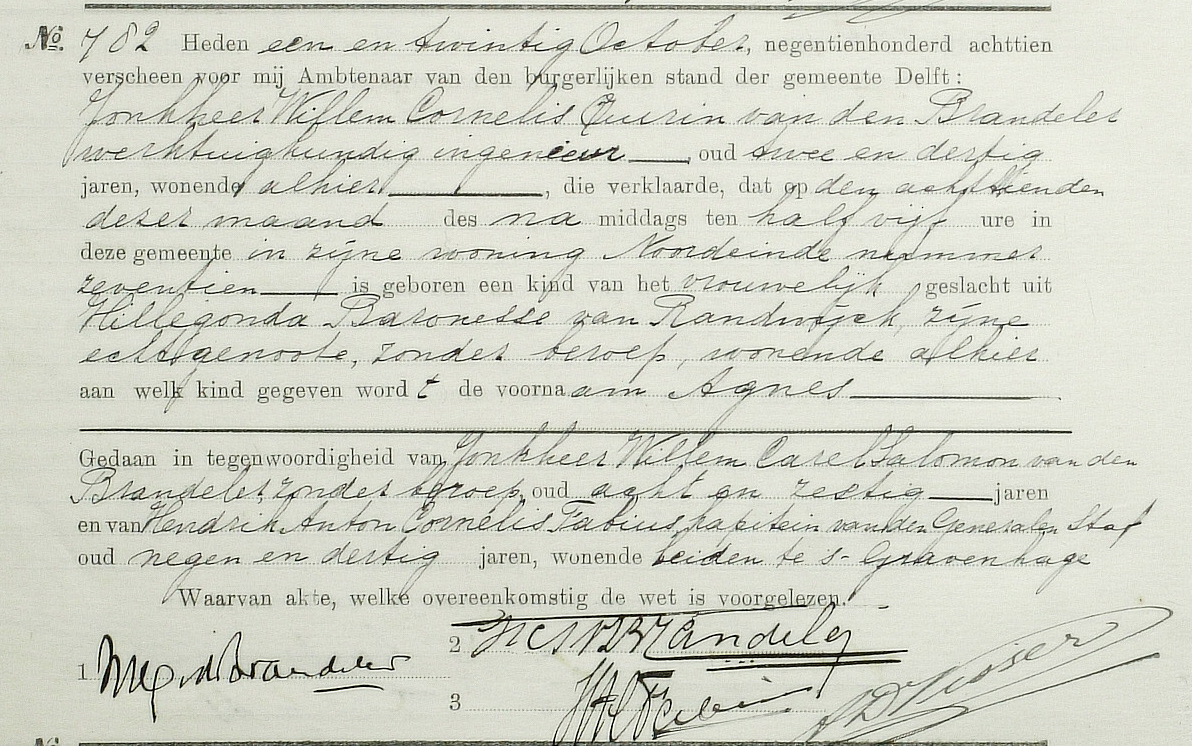 No. 782 Heden een en twintig October, negentienhonderd achttien
verscheen voor mij Ambtenaar van den burgerlijken stand der gemeente Delft:
Jonkheer Willem Cornelis Quirin van den Brandeler
werktuigkundig ingenieur, oud twee en dertig
jaren, wonende alhier, die verklaarde, dat op den achttienden
dezer maand des na middags ten half vijf ure in
deze gemeente in zijne woning Noordeinde nummer
zeventien is geboren een kind van het vrouwelijk geslacht uit
Hillegonda Baronesse van Randwijck, zijne
echtgenoote, zonder beroep, wonende alhier
aan welk kind gegeven wordt de voornaam Agnes
Gedaan in tegenwoordigheid van Jonkheer Willem Carel Salomon van den
Brandeler, zonder beroep, oud acht en zestig jaren
en van Hendrik Anton Cornelis Fabius, kapitein van den Generalen Staf
oud negen en dertig jaren, wonende beiden te 's-Gravenhage
Waarvan akte, welke overeenkomstig de wet is voorgelezen.
2 Brandeler
1 Brandeler
3 Fabius Visser
No